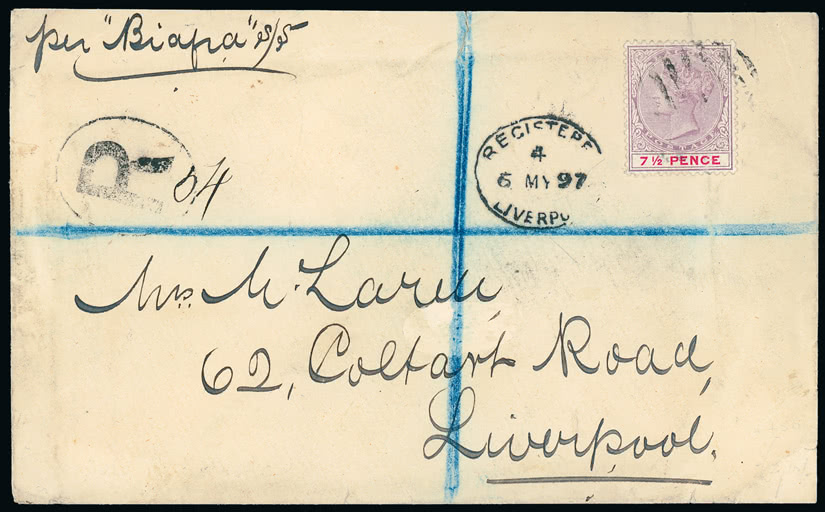 per "Biafra" s/s
R
04
REGISTERE
4
6 MY 97
LIVERPO
POSTAGE
7½ PENCE
Mrs. Mc.Laren,
62, Coltart Road,
Liverpool.